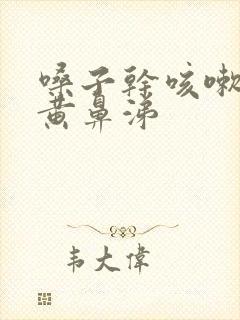 嗓子干咳嗽
黄鼻涕
韦大伟